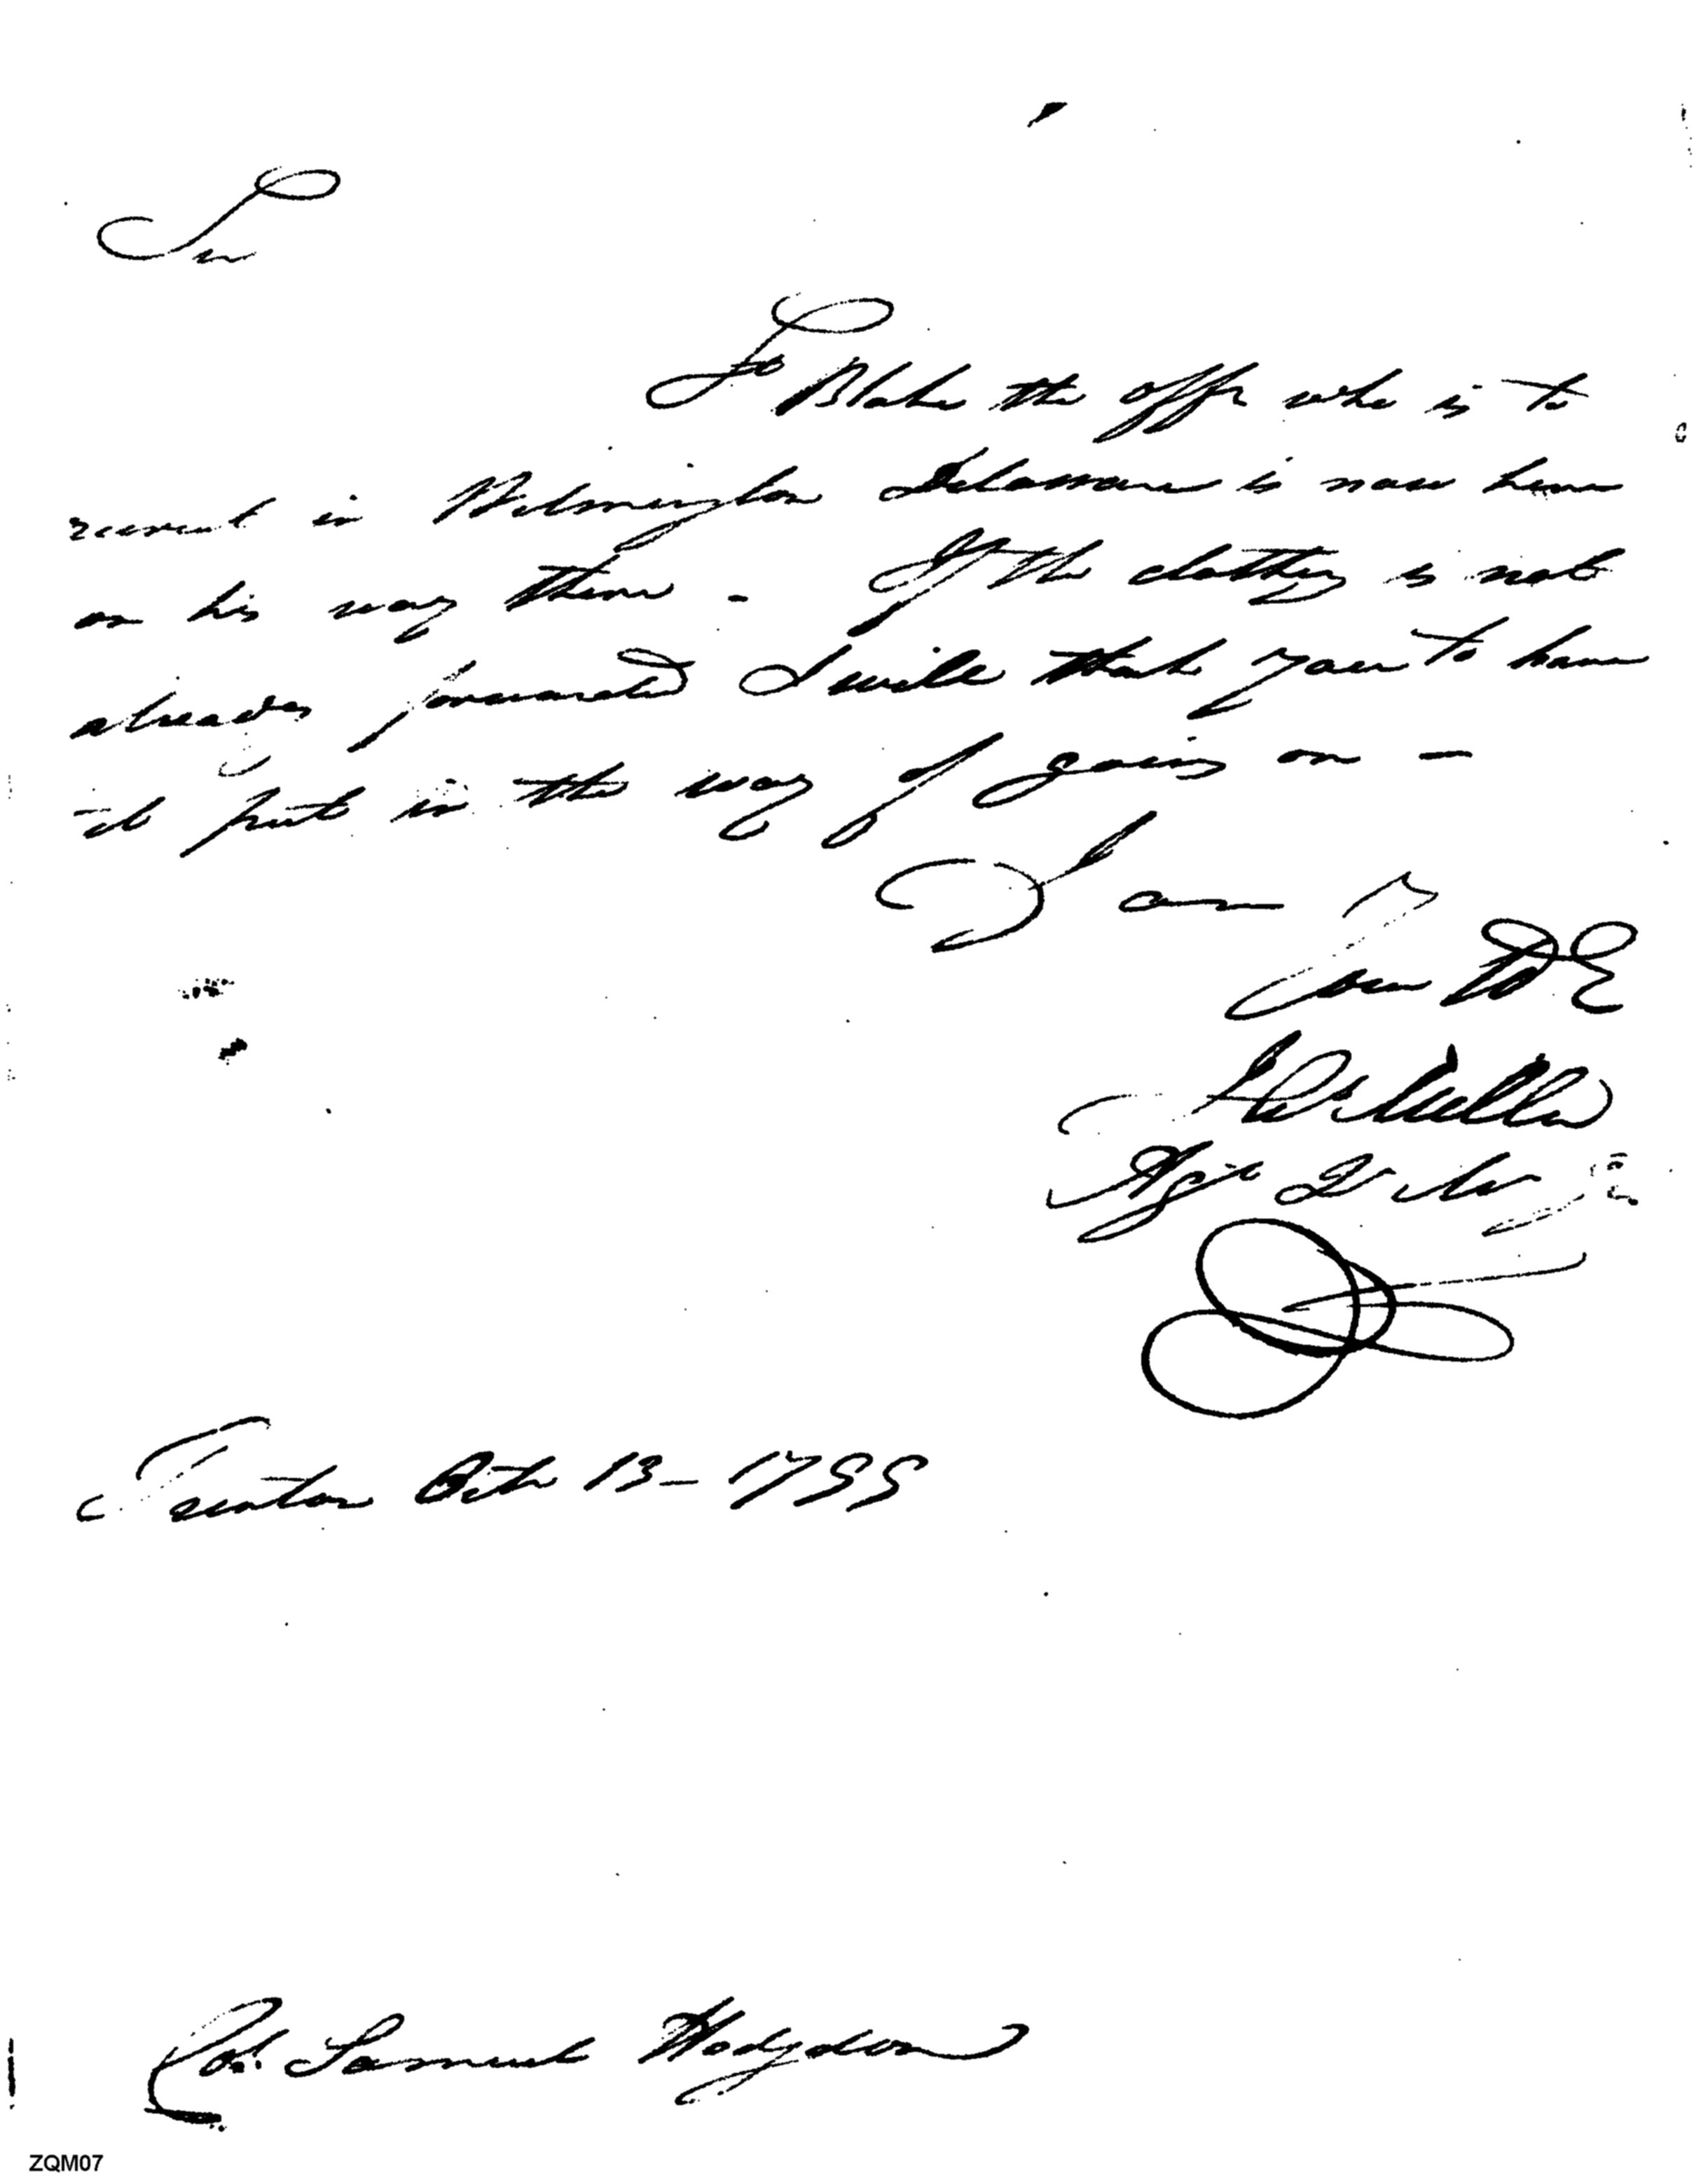 Sir
Lt Blake the offr who is to
recruit in Wilmington Delaware is now here
on his way there - If the clothing is not
already forwarded I will thank you to have
it put in the way of going on -
I am
Your Ob S
Trenton Octr 13 - 1799
Col. Samuel Hodgdon
ZQM07